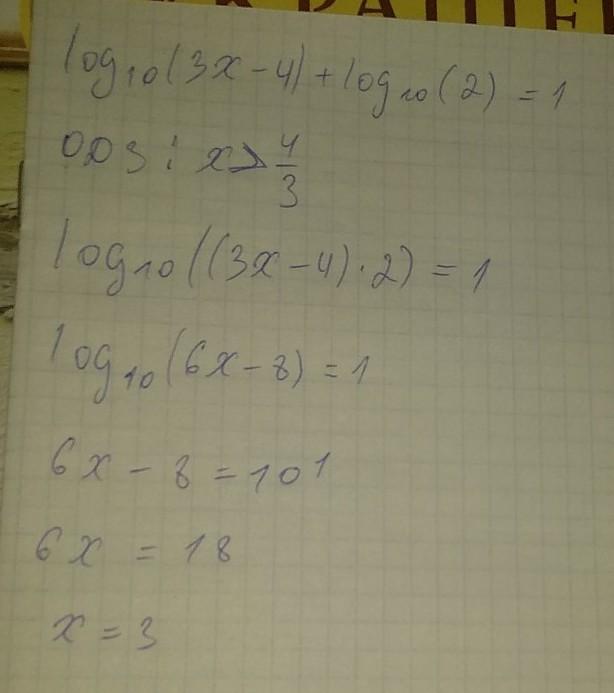 log₁₀(3x-4)+log₁₀(2)=1
ОДЗ: x>4/3
log₁₀((3x-4)·2)=1
log₁₀(6x-8)=1
6x-8=10¹
6x=18
x=3